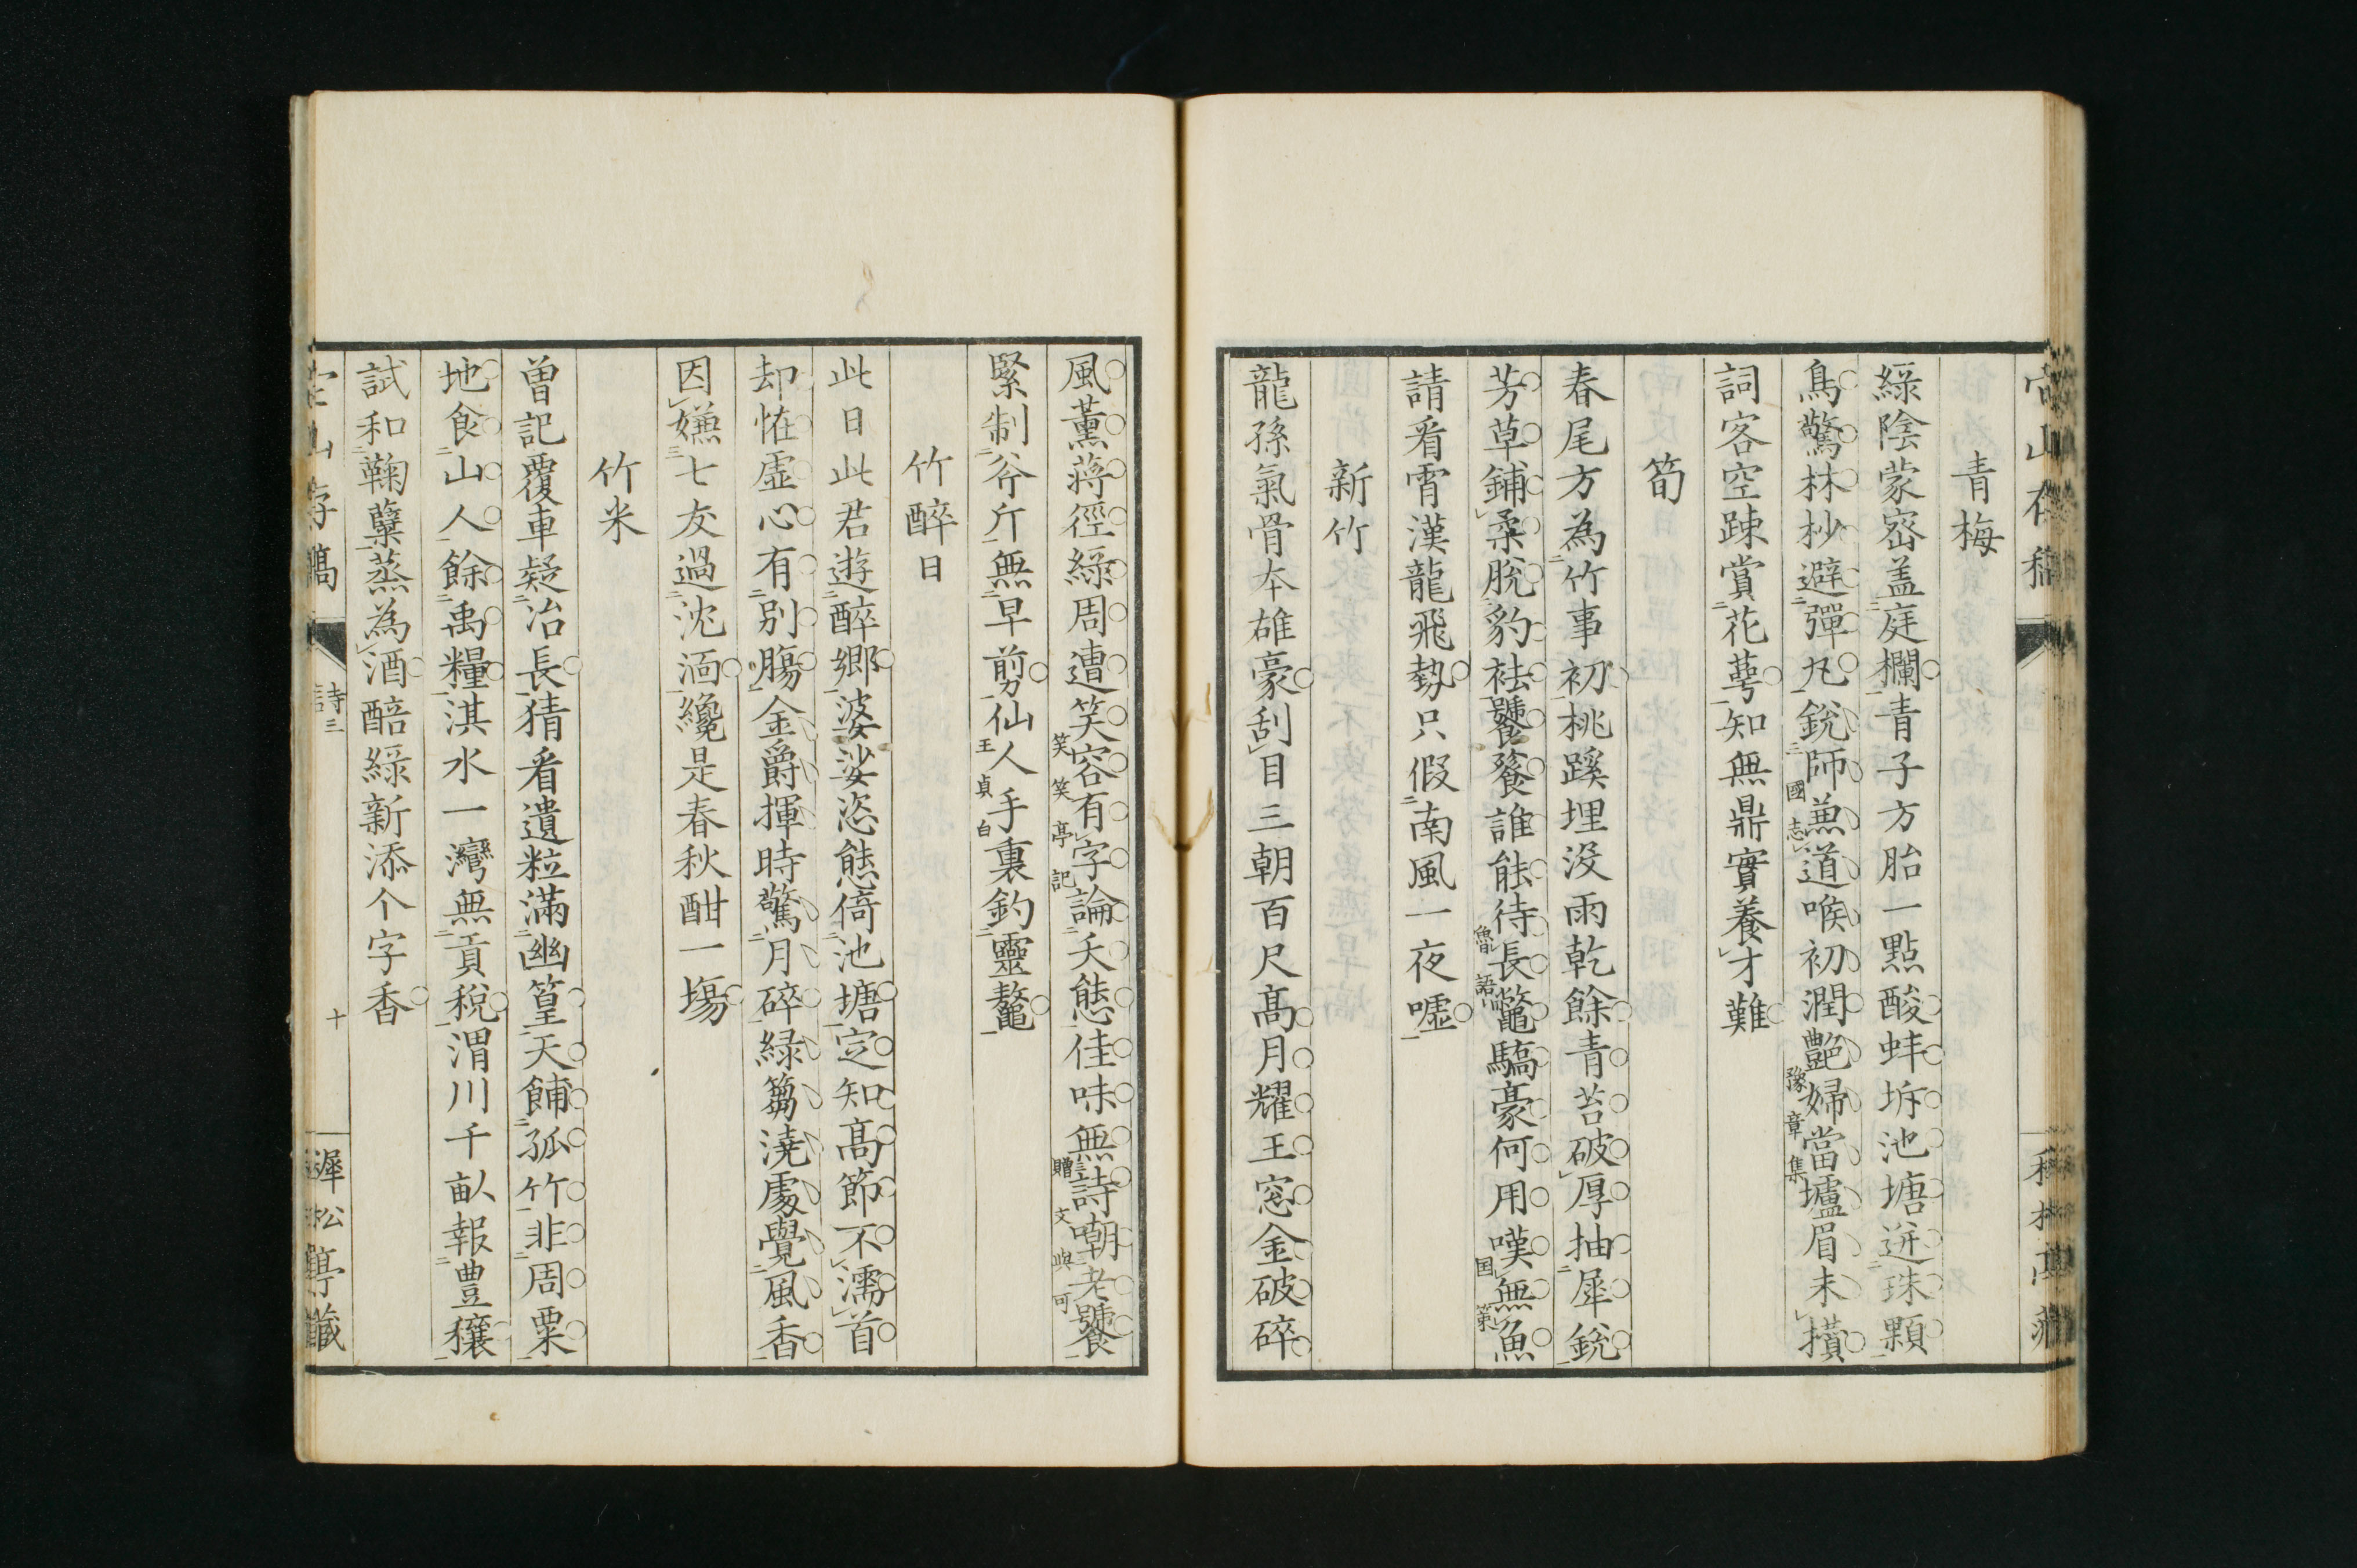 青梅
綠陰蒙宻盖庭欄青子方胎一點酸蚌坼池塘迸珠顆
鳥驚林杪避彈丸銳師兼道喉初潤艷婦當壚眉未攢
國志
豫章集
詞客空踈賞花萼知無鼎實養才難
筍
春尾方為竹事初桃蹊埋没雨乾餘青苔破厚抽犀銳
芳草鋪柔脫豹袪饕餮誰能待長鼈驕豪何用嘆無魚
魯語
国策
請看霄漢龍飛勢只假南風一夜噓
新竹
龍孫氣骨本雄豪刮目三朝百尺高月耀玉窓金破碎
風薰蔣徑綠周遭笑容有字論夭態佳味無詩嘲老饕
笑笑亭記
贈文與可
緊制斧斤無早剪仙人手裏釣靈鼇
王貞白
竹醉日
此日此君遊醉鄉婆娑恣態倚池塘定知高節不濡首
却恠虛心有別膓金爵揮時驚月碎綠蒭澆處覺風香
因嫌七友過沈湎纔是春秋酣一塲
竹米
曽記覆車疑冶長猜看遺粒滿幽篁天餔孤竹非周粟
地食山人餘禹糧淇水一灣無貢稅渭川千畝報豊穰
試和麴糵蒸為酒醅綠新添个字香
山存稿
詩三
十
遲松亭藏